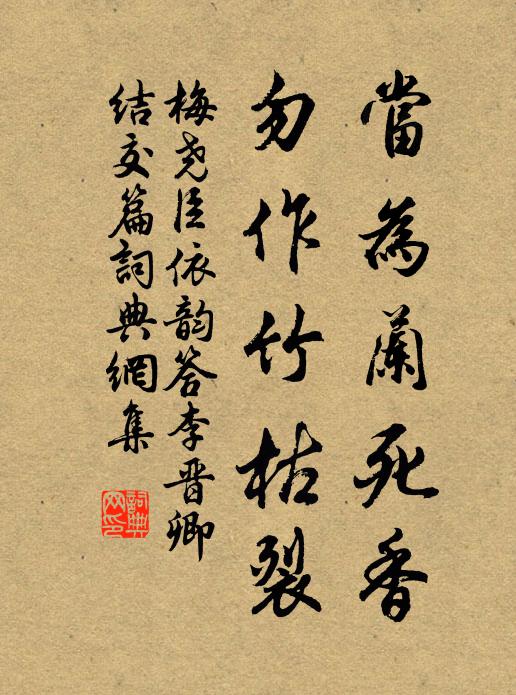 當為蘭死香
勿作竹枯裂
梅尧臣依韵答李晋卿
结交篇詞典網集
詞典網印